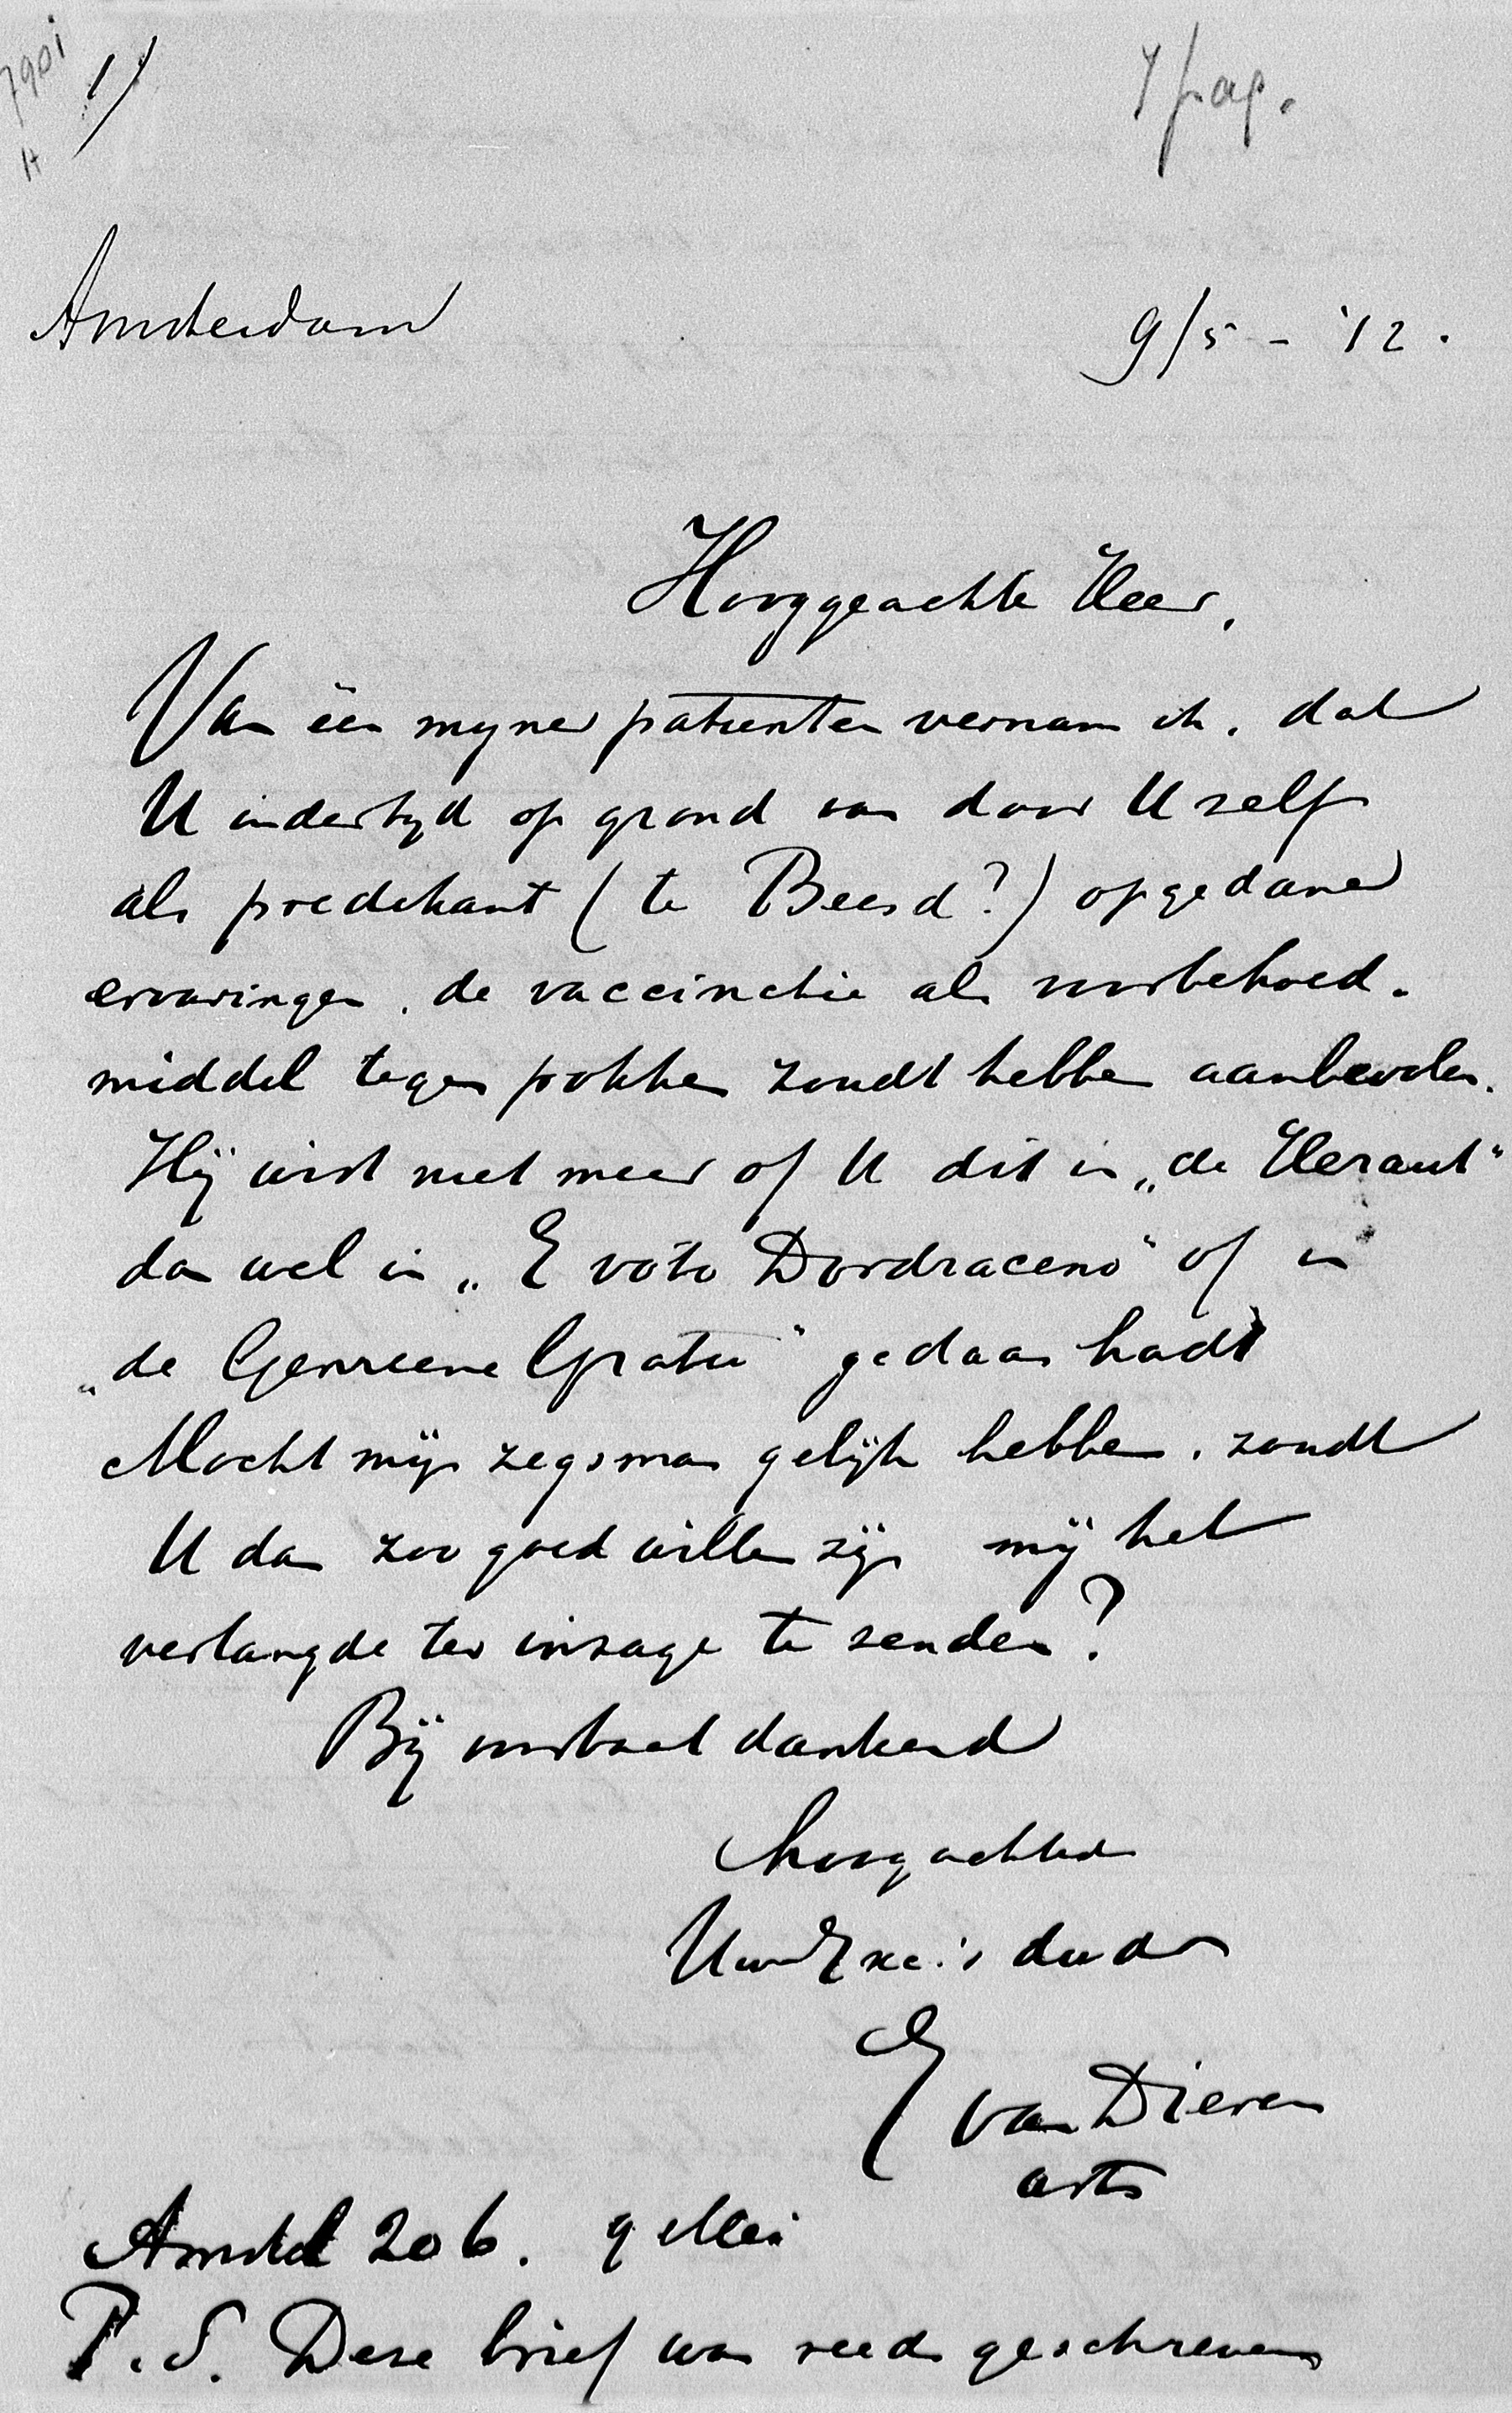 7901
A
1)
7 pag.
Amsterdam
9/5 - '12.
Hooggeachte Heer,
Van één mijner patienten vernam ik, dat
U indertijd op grond van door U zelf
als predikant (te Beesd?) opgedane
ervaringen, de vaccinatie als voorbehoed-
middel tegen pokken zoudt hebben aanbevolen.
Hij wist niet meer of U dit in „de Heraut"
dan wel in „E voto Dordraceno" of in
„de Gemeene Gratie" gedaan hadt
Mocht mijn zegsman gelijk hebben, zoudt
U dan zoo goed willen zijn mij het
verlangde ter inzage te zenden?
Bij voorbaat dankend
hoogachtend
Uw Exc.'s dw dr
E van Dieren
arts
Amstel 206. 9 Mei
P.S. Deze brief was reeds geschreven